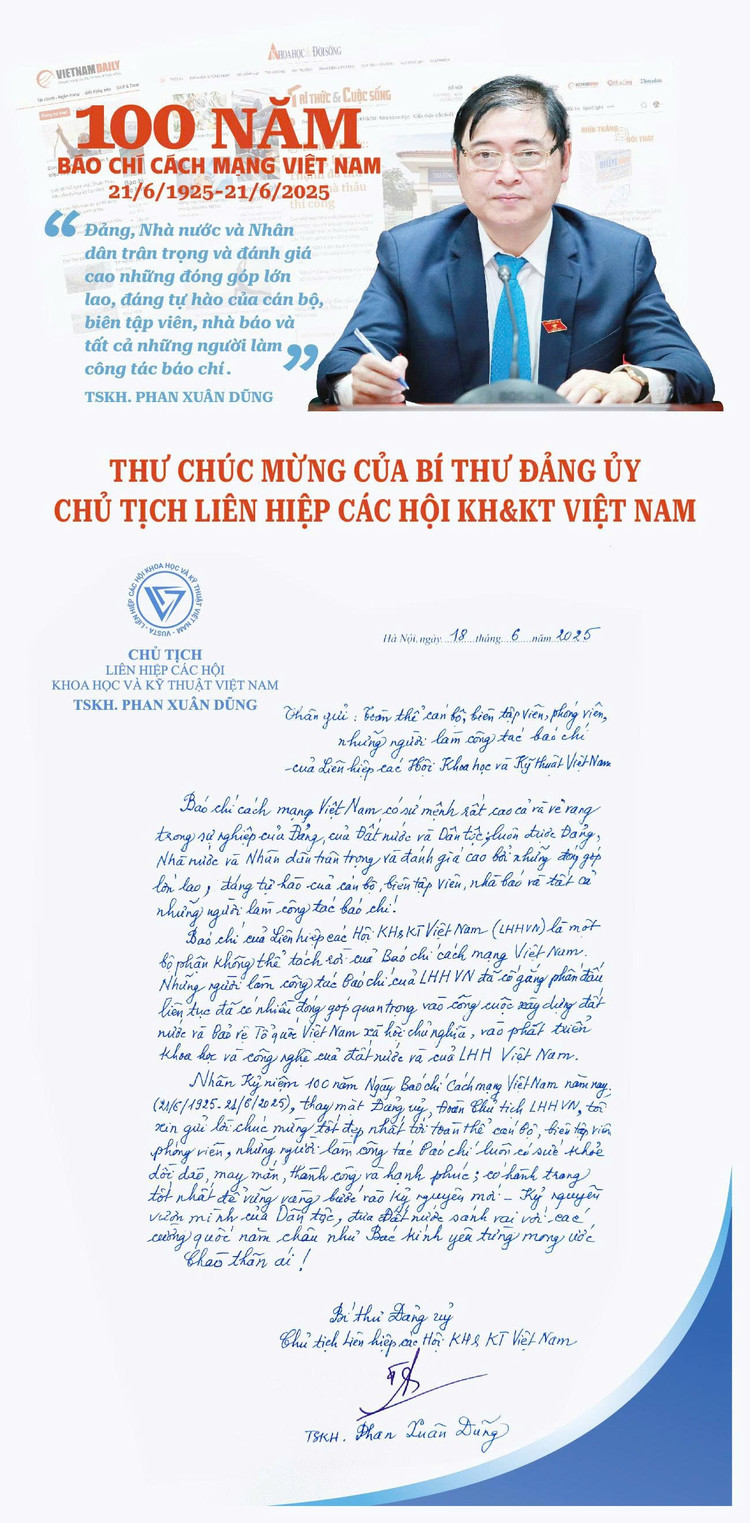 VIETNAMDAILY
KHOA HỌC & ĐỜI SỐNG
TRI THỨC & CUỘC SỐNG
100 NĂM
BÁO CHÍ CÁCH MẠNG VIỆT NAM
21/6/1925-21/6/2025
“Đảng, Nhà nước và Nhân
dân trân trọng và đánh giá
cao những đóng góp lớn
lao, đáng tự hào của cán bộ,
biên tập viên, nhà báo và
tất cả những người làm
công tác báo chí.”
TSKH. PHAN XUÂN DŨNG
BOSCH
THƯ CHÚC MỪNG CỦA BÍ THƯ ĐẢNG ỦY
CHỦ TỊCH LIÊN HIỆP CÁC HỘI KH&KT VIỆT NAM
VUSTA - LIÊN HIỆP CÁC HỘI KHOA HỌC VÀ KỸ THUẬT VIỆT NAM
CHỦ TỊCH
LIÊN HIỆP CÁC HỘI
KHOA HỌC VÀ KỸ THUẬT VIỆT NAM
TSKH. PHAN XUÂN DŨNG
Hà Nội, ngày 18 tháng 6 năm 2025
Thân gửi: Toàn thể cán bộ, biên tập viên, phóng viên,
những người làm công tác báo chí
của Liên hiệp các Hội Khoa học và Kỹ thuật Việt Nam
Báo chí cách mạng Việt Nam có sứ mệnh rất cao cả và vẻ vang
trong sự nghiệp của Đảng, của Đất nước và Dân tộc, luôn được Đảng,
Nhà nước và Nhân dân trân trọng và đánh giá cao bởi những đóng góp
lớn lao, đáng tự hào của cán bộ, biên tập viên, nhà báo và tất cả
những người làm công tác báo chí.
Báo chí của Liên hiệp các Hội KH&KT Việt Nam (LHHVN) là một
bộ phận không thể tách rời của Báo chí cách mạng Việt Nam.
Những người làm công tác Báo chí của LHHVN đã cố gắng phấn đấu
liên tục đã có nhiều đóng góp quan trọng vào công cuộc xây dựng đất
nước và Bảo vệ Tổ quốc Việt Nam xã hội chủ nghĩa, vào phát triển
khoa học và công nghệ của đất nước và của LHH Việt Nam.
Nhân Kỷ niệm 100 năm Ngày Báo chí Cách mạng Việt Nam năm nay
(21/6/1925-21/6/2025), thay mặt Đảng ủy, Đoàn Chủ tịch LHHVN, tôi
xin gửi lời chúc mừng tốt đẹp nhất tới toàn thể cán bộ, biên tập viên
phóng viên, những người làm công tác Báo chí luôn có sức khỏe
dồi dào, may mắn, thành công và hạnh phúc; có hành trang
tốt nhất để vững vàng bước vào Kỷ nguyên mới - Kỷ nguyên
vươn mình của Dân tộc, đưa Đất nước sánh vai với các
cường quốc năm châu như Bác kính yêu từng mong ước
Chào thân ái!
Bí thư Đảng uỷ
Chủ tịch Liên hiệp các Hội KH& KT Việt Nam
TSKH. Phan Xuân Dũng